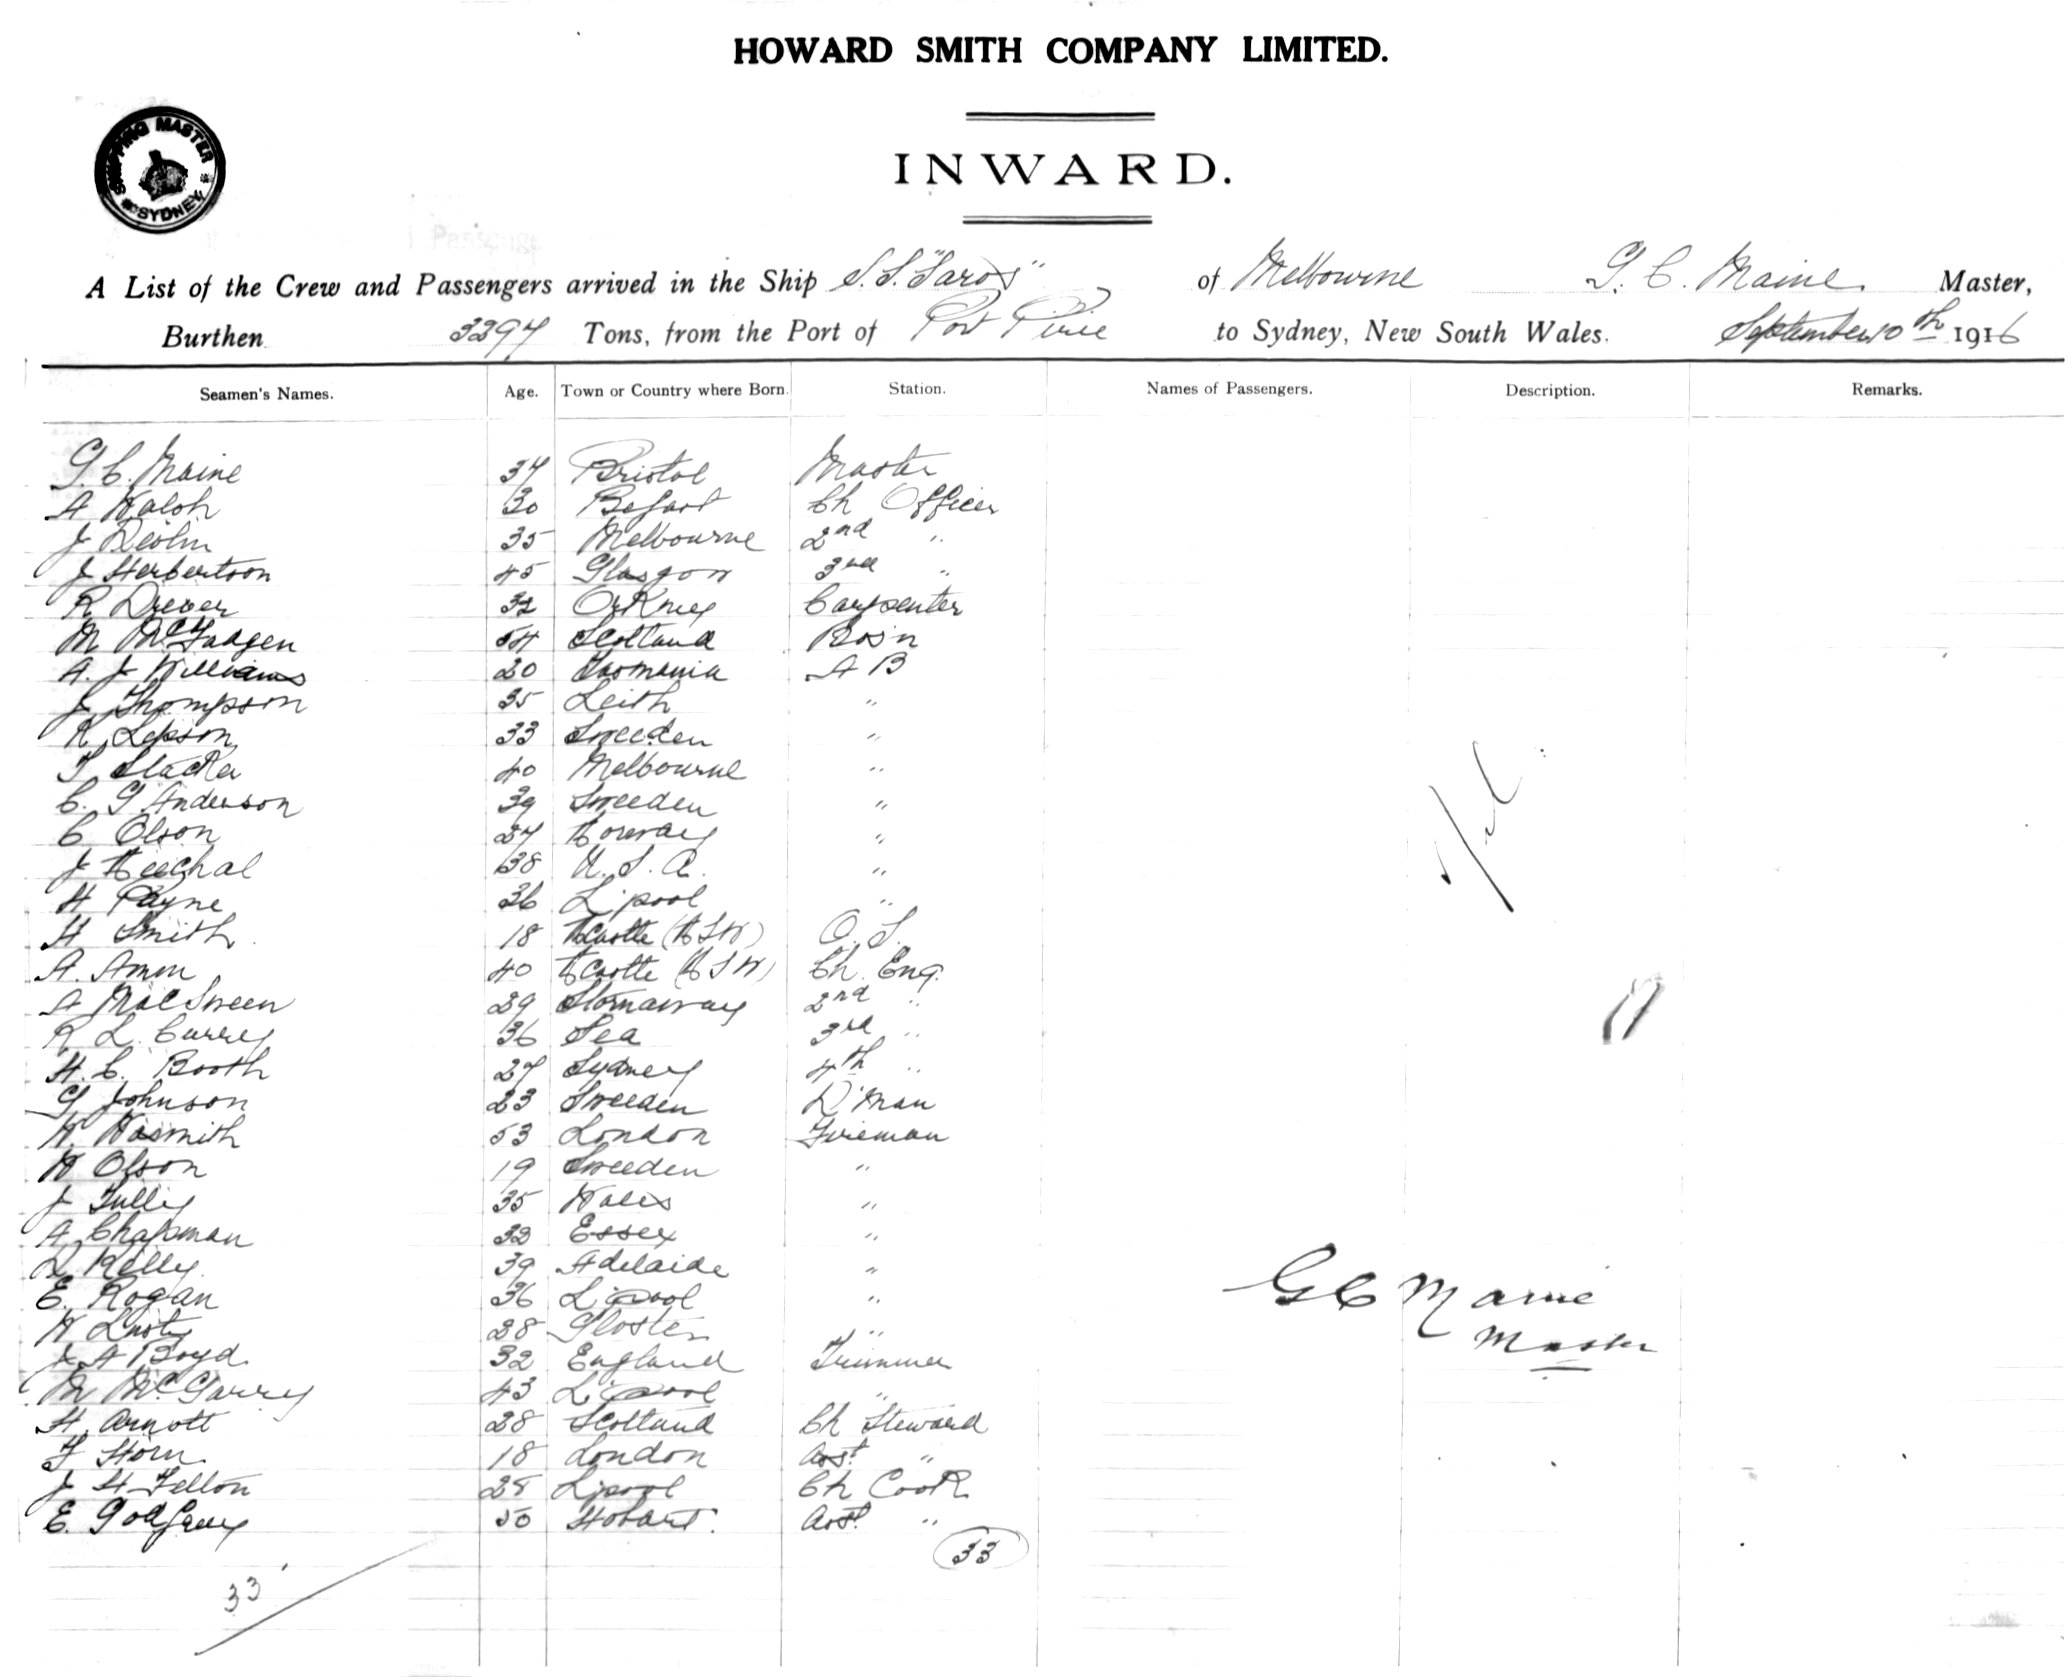 HOWARD SMITH COMPANY LIMITED.
INWARD.
SHIPPING MASTER SYDNEY
A List of the Crew and Passengers arrived in the Ship S.S. "Saros" of Melbourne G. C. Maine Master,
Burthen 3394 Tons, from the Port of Port Pirie to Sydney, New South Wales. September 10th 1916
Seamen's Names. Age. Town or Country where Born. Station. Names of Passengers. Description. Remarks.
G. C. Maine 37 Bristol Master
A Walsh 30 Befast Ch Officer
J Devlin 35 Melbourne 2nd "
J Herbertson 45 Glasgow 3rd "
R Drever 32 Orkney Carpenter
M McFadgen 54 Scotland Bos'n
A. J Williams 20 Tasmania A B
J Thompson 35 Leith "
R Lepson 33 Sweeden "
T Slacke 40 Melbourne "
C. G Anderson 39 Sweeden "
C Olson 27 Norway "
J 38 U. S. A. "
H Payne 36 L'pool "
H Smith 18 N'Castle (NSW) O. S.
A. Amm 40 N'Castle (NSW) Ch. Eng.
A MacSween 29 Stornaway 2nd "
R L. Currey 36 Sea 3rd "
H. C. Booth 27 Sydney 4th "
G Johnson 23 Sweeden D'man
W. Wasmith 53 London Fireman
W Olson 19 Sweeden "
J Tully 35 Wales "
A Chapman 32 Essex "
D Kelly 39 Adelaide "
E. Rogan 36 L'pool "
W Lusty 28 Gloster "
J. A Boyd 32 England Trimmer
M McGarry 43 L'pool "
H. Arnott 28 Scotland Ch Steward
F Horn 18 London Asst "
J H Felton 28 L'pool Ch Cook
E. Godfrey 50 Hobart. Asst "
33
33
Nil
G C Maine
Master